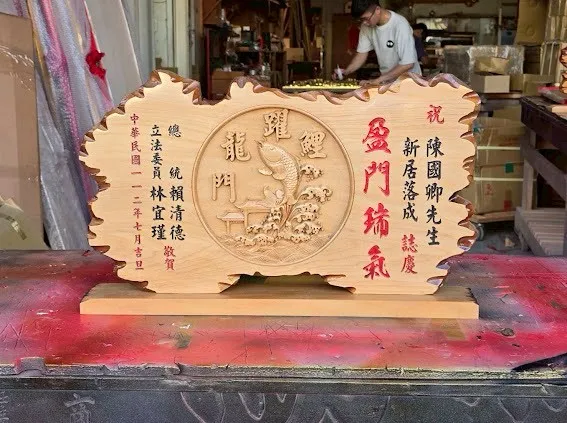 祝
陳國卿先生
新居落成 誌慶
盈門瑞氣
鯉躍龍門
總統賴清德
立法委員林宜瑾
敬賀
中華民國一一二年七月吉旦